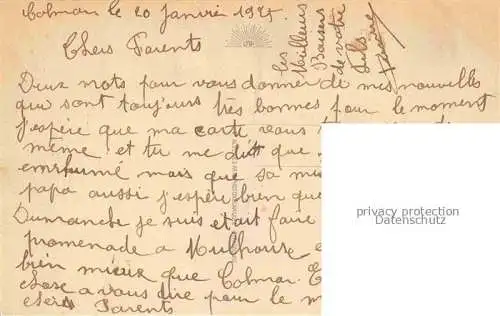 Colmar le 20 Janvié 1925
Chers Parents
Deux mots pour vous donner de mes nouvelles
que sont toujours très bonnes pour le moment
J'espère que ma carte vous
même et tu me dit que
enrhumé mais que sa
papa aussi j'espère bien que
Dumanche je suis etait faire
promenade a Mulhouse
bien mieux que Colmar.
chose a vous dire pour le
chers Parents
les
Meilleurs
Baisers
de votre
fils
privacy protection
Datenschutz